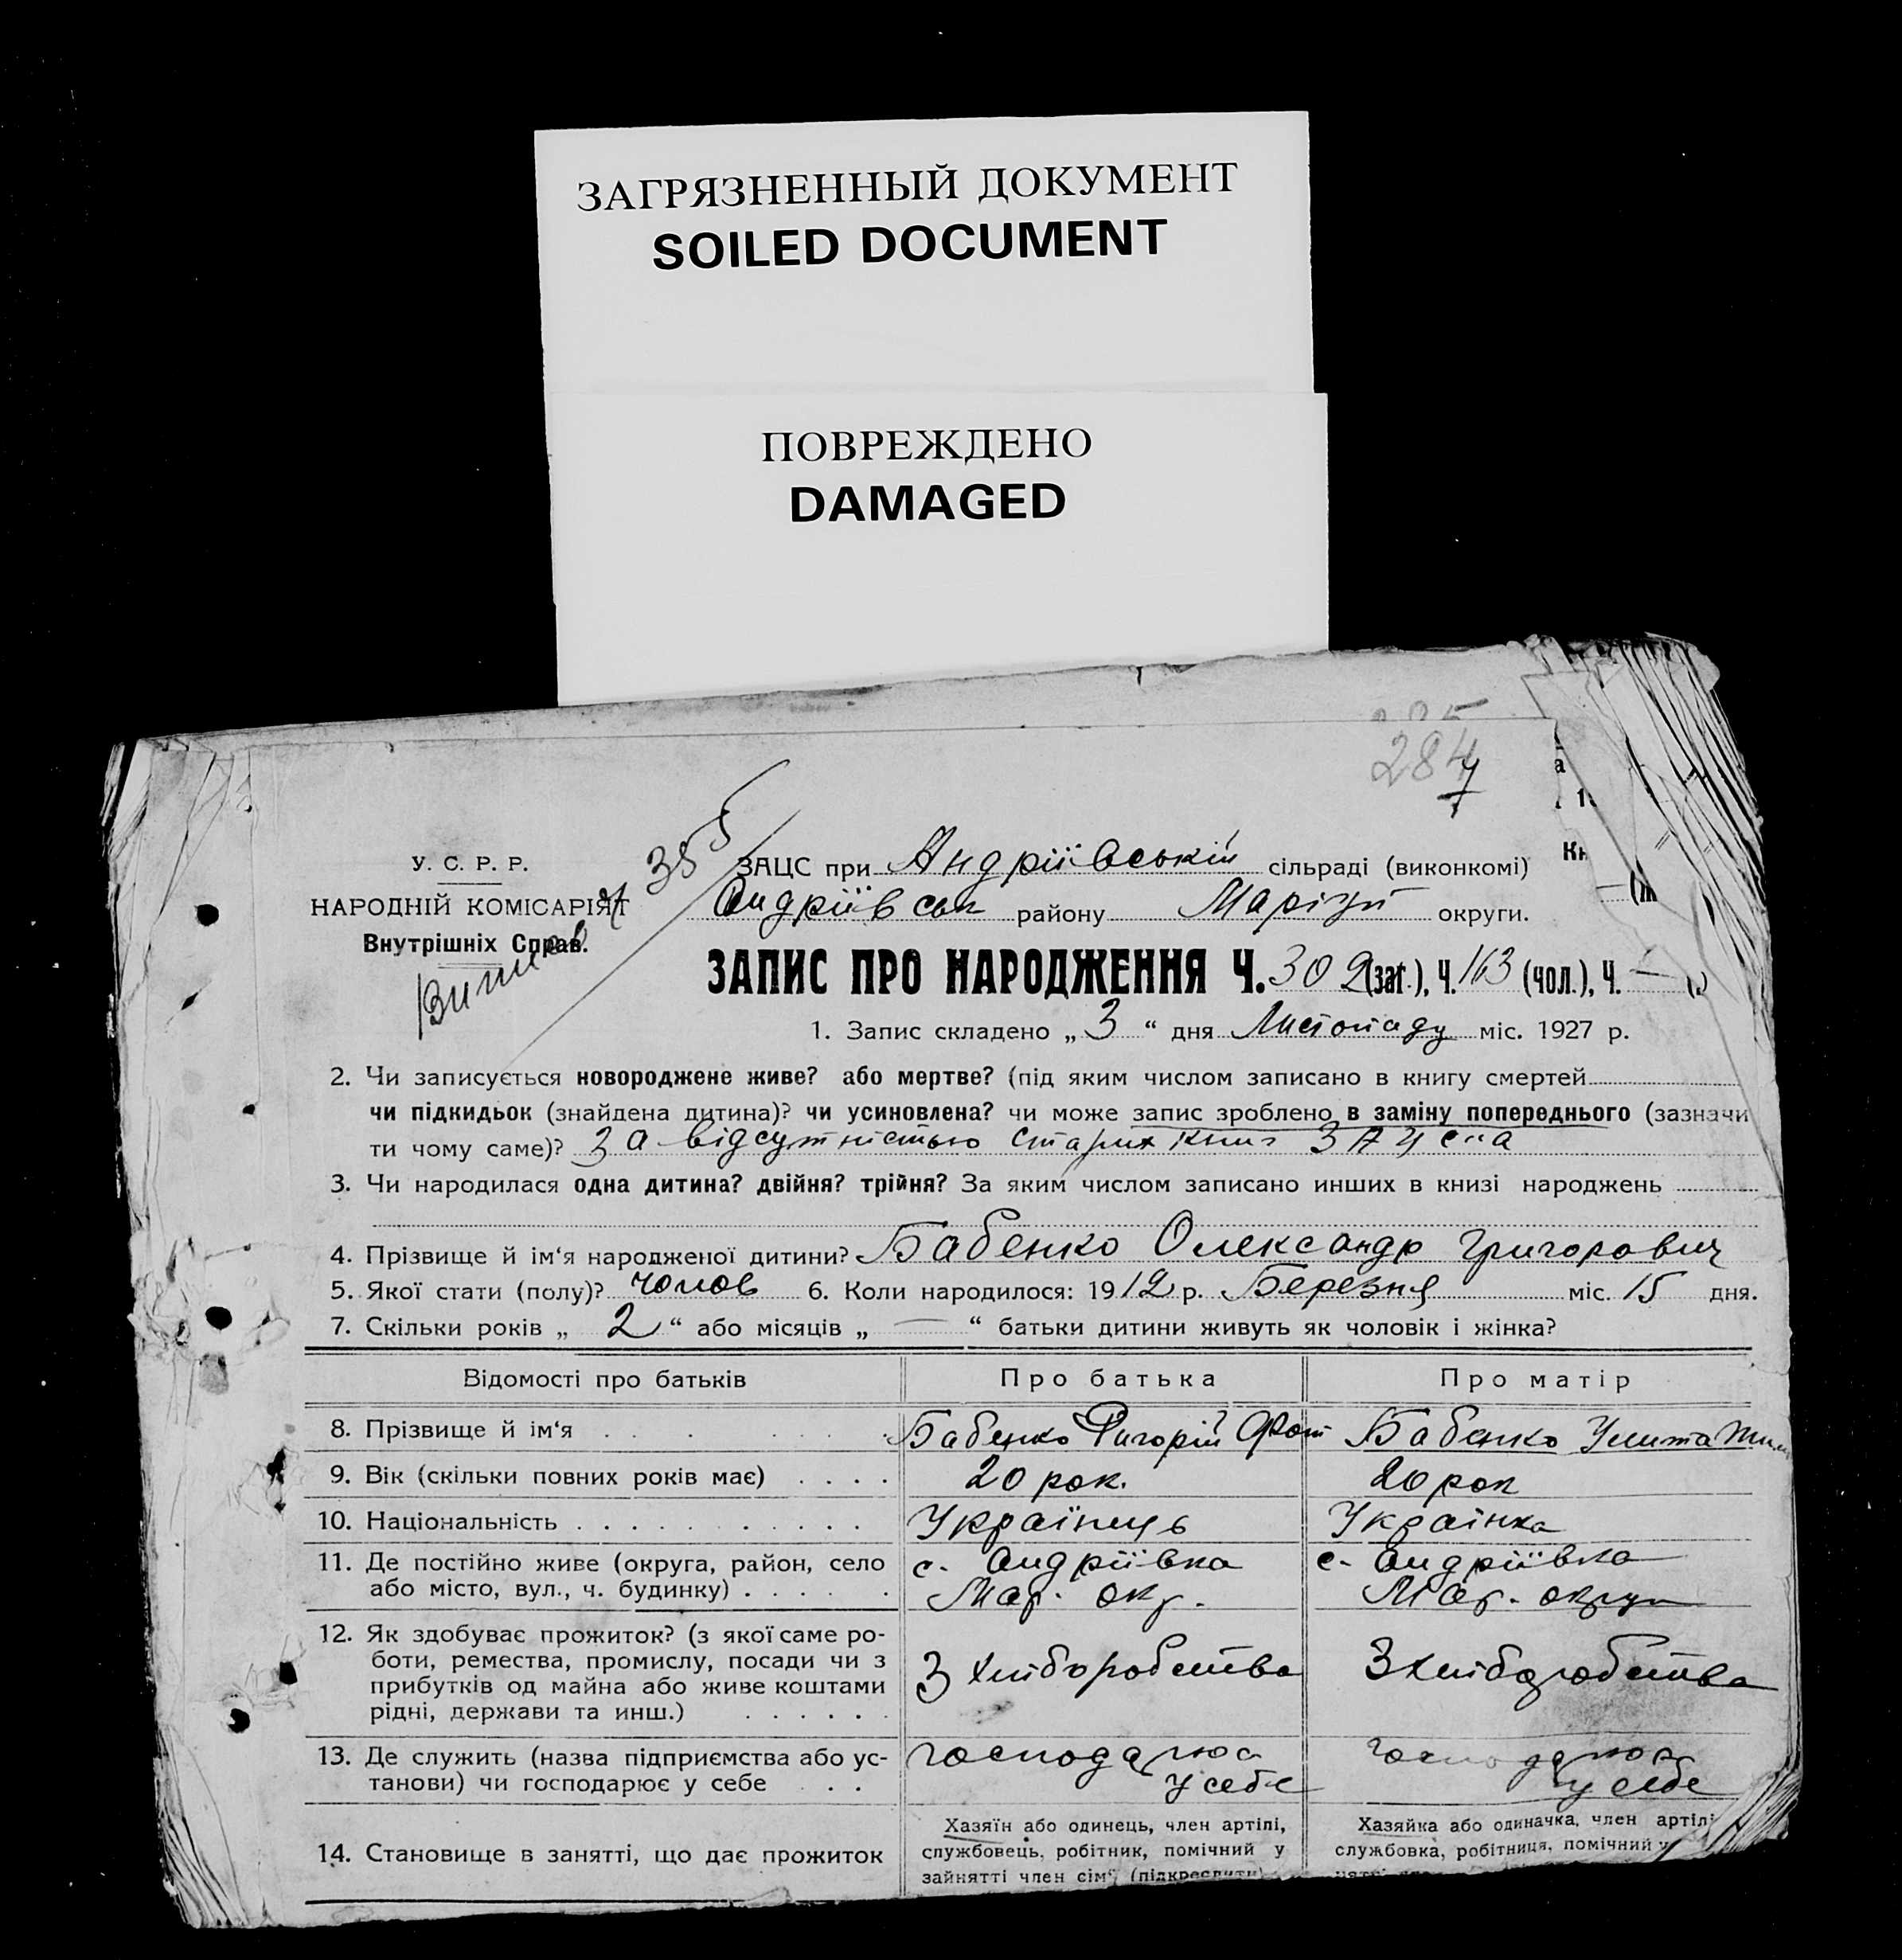 ЗАГРЯЗНЕННЫЙ ДОКУМЕНТ
SOILED DOCUMENT
ПОВРЕЖДЕНО
DAMAGED
284
7
355
У. С. Р. Р.
НАРОДНІЙ КОМІСАРІЯТ
Внутрішніх Справ.
ЗАЦС при Андріївській сільраді (виконкомі)
Андріївськ району Маріуп округи.
ЗАПИС ПРО НАРОДЖЕННЯ Ч. 302 (заг.), Ч. 163 (чол.), Ч. —
1. Запис складено „ 3 “ дня Листопаду міс. 1927 р.
2. Чи записується новороджене живе? або мертве? (під яким числом записано в книгу смертей
чи підкидьок (знайдена дитина)? чи усиновлена? чи може запис зроблено в заміну попереднього (зазначи
ти чому саме)? За відсутністью старих книг ЗАЦСна
3. Чи народилася одна дитина? двійня? трійня? За яким числом записано инших в книзі народжень
4. Прізвище й ім‘я народженої дитини? Бабенко Олександр Григорович
5. Якої стати (полу)? чолов 6. Коли народилося: 1912 р. Березня міс. 15 дня.
7. Скільки років „ 2 “ або місяців „ — “ батьки дитини живуть як чоловік і жінка?
Відомості про батьків Про батька Про матір
8. Прізвище й ім‘я Бабенко Григорій Фот Бабенко Улита
9. Вік (скільки повних років має) 20 рок. 20 рок
10. Національність Українець Українка
11. Де постійно живе (округа, район, село с. Андріївка с. Андріївка
або місто, вул., ч. будинку) Мар. окр. Мар. округи
12. Як здобуває прожиток? (з якої саме ро-
боти, ремества, промислу, посади чи з З хліборобства З хліборобства
прибутків од майна або живе коштами
рідні, держави та инш.)
13. Де служить (назва підприємства або ус- господарює господарює
танови) чи господарює у себе у себе у себе
Хазяїн або одинець, член артілі, Хазяйка або одиначка, член артіл
14. Становище в занятті, що дає прожиток службовець, робітник, помічний у службовка, робітниця, помічний у
зайнятті член сім‘ї (підкреслити)